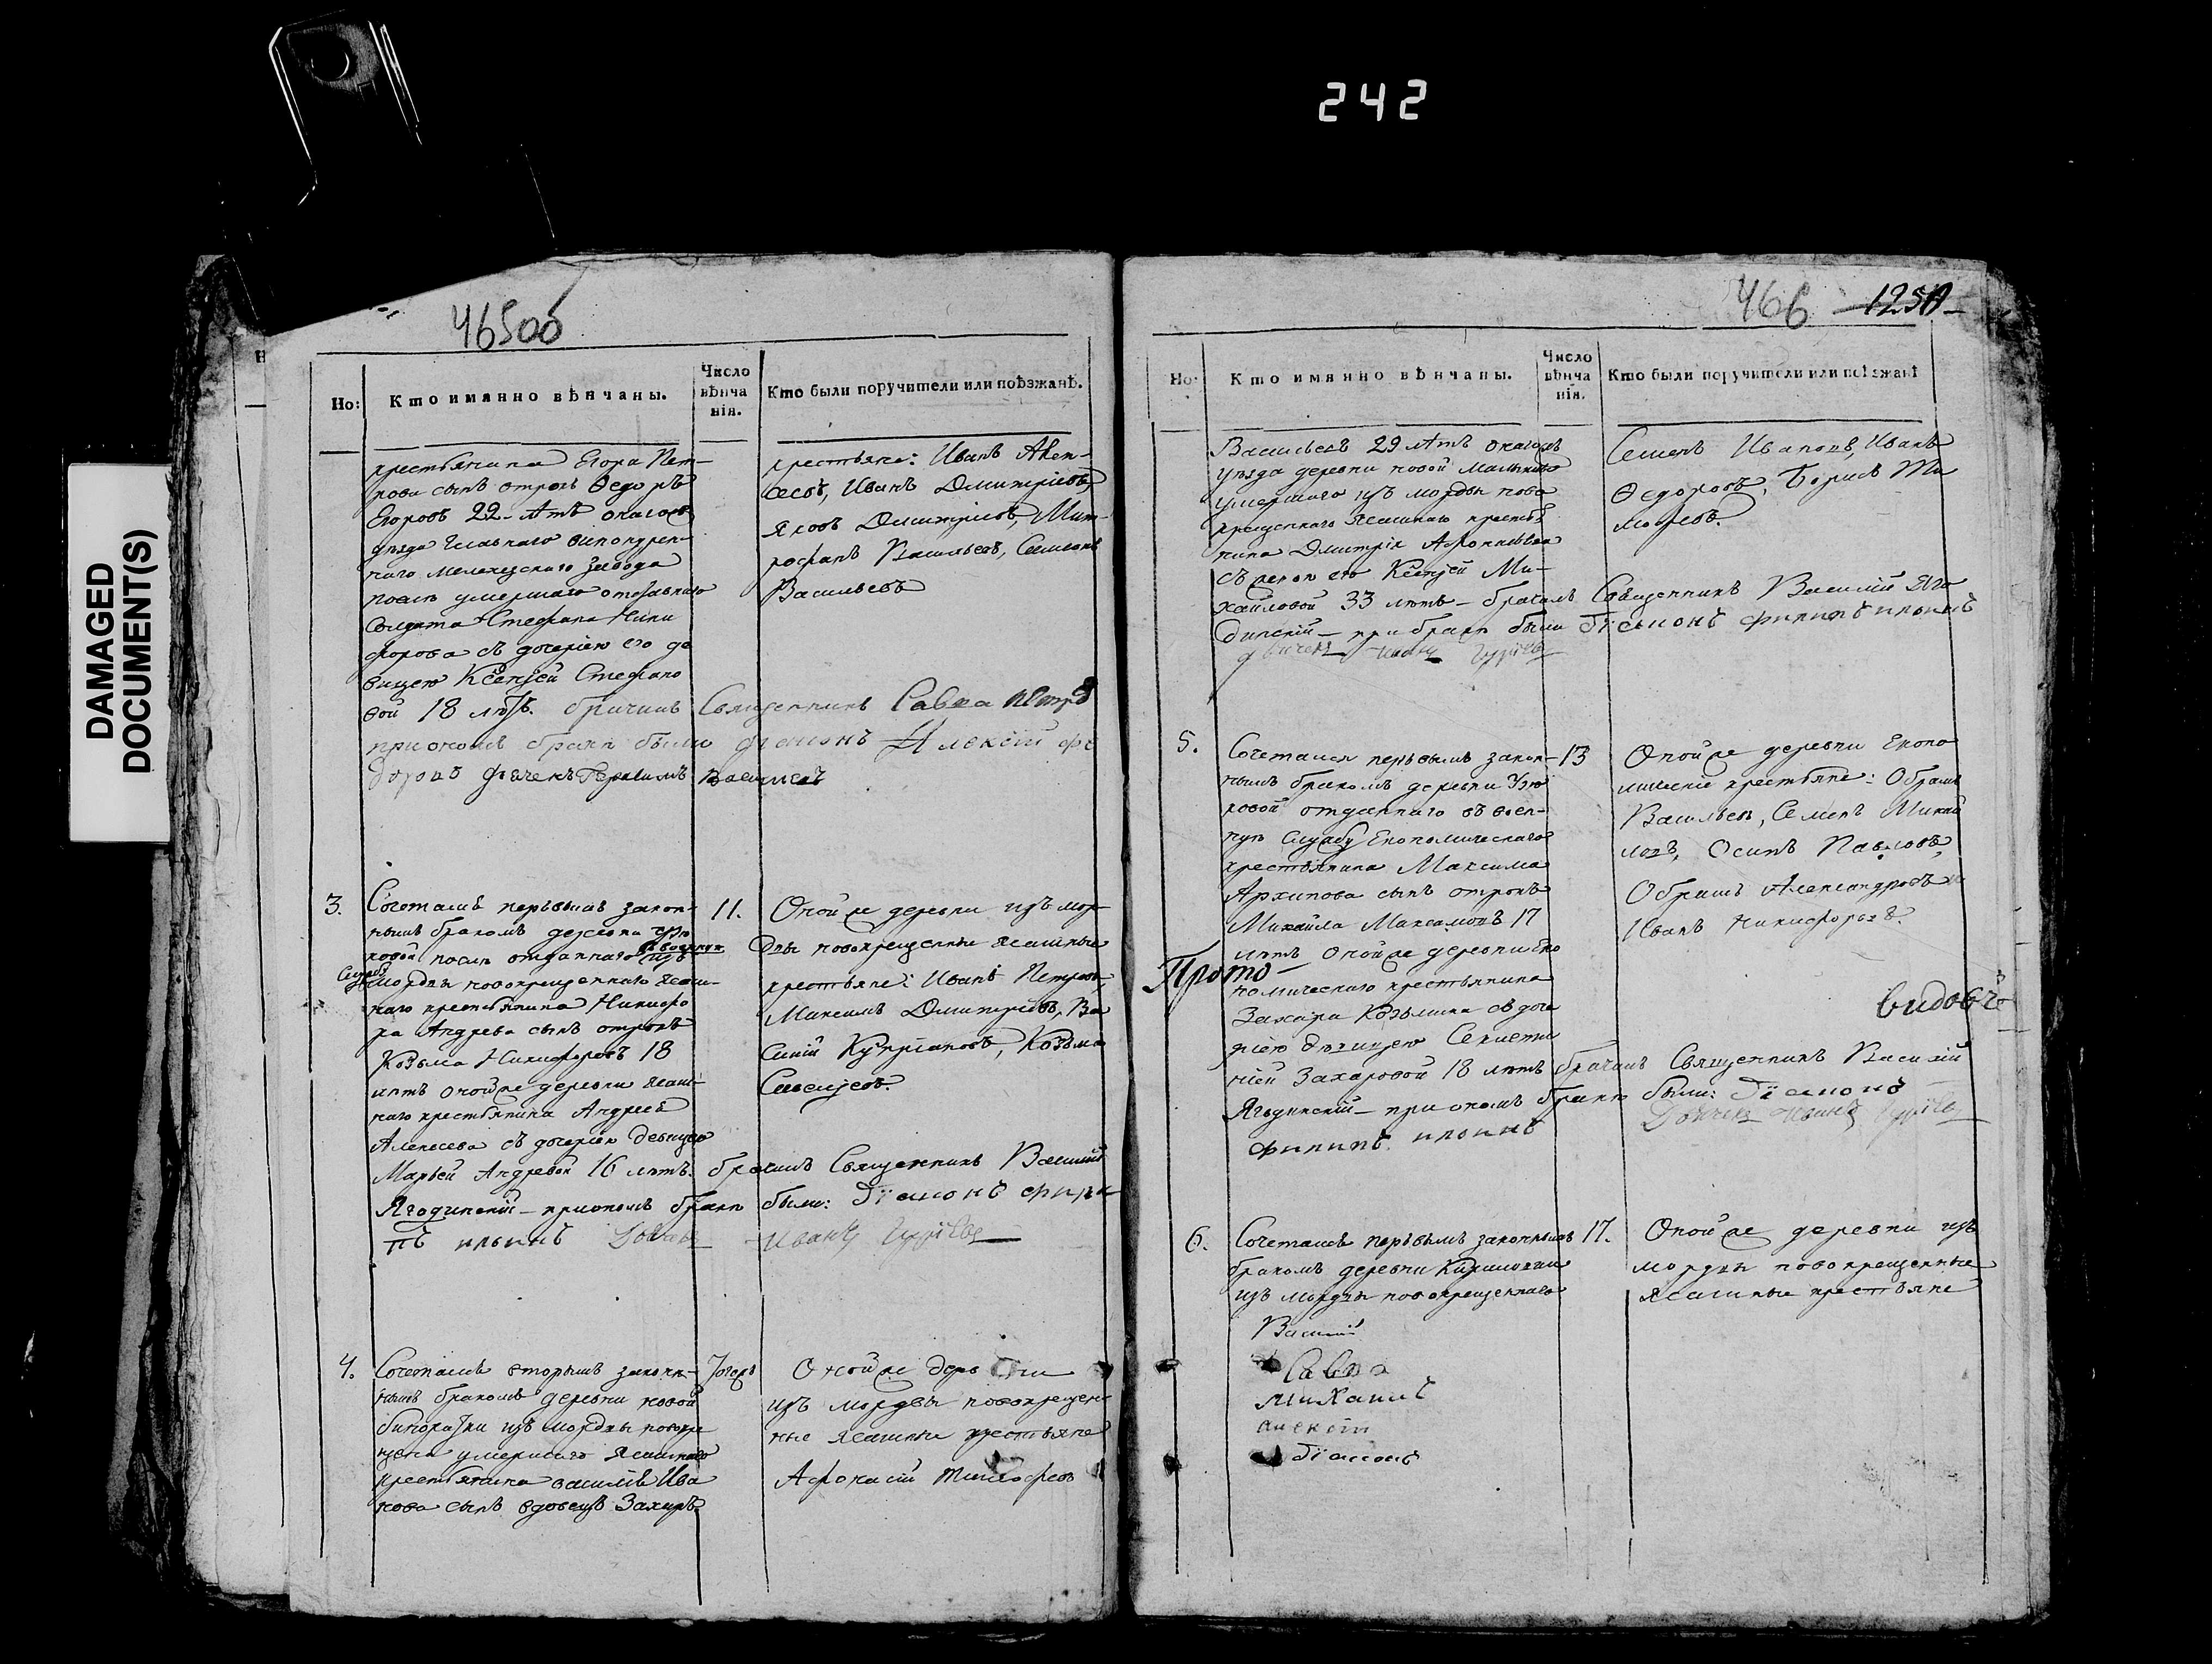 242
DAMAGED
DOCUMENT(S)
465об
Но:
Кто имянно вѣнчаны.
Число
вѣнча
нія.
Кто были поручители или поѣзжанѣ.
крестьянина Егора Пет-
рова сынъ отрокъ Ѳедоръ
Егоровъ 22 лѣтъ онагожъ
уѣзда главнаго винокурен-
наго Мелекезскаго завода
послѣ умершаго отставнаго
Солдата Стефана Ники
форова съ дочерью его де
вицею Ксенией Стефано
вой 18 лѣтъ. бра­чилъ Священникъ Савва Петро
при ономъ бракѣ были дьяконъ Алексій Фе
доровъ дьячекъ Герасимъ Васильевъ
крестьяне: Иванъ
Иванъ Дмитріевъ,
Яковъ Дмитріевъ, Мит-
рофанъ Васильевъ, Семионъ
Васильевъ
3.
Сочетался первымъ закон-
нымъ бракомъ деревни Узю
ковой послѣ отданнаго въ военную
Службу изъ мордвы новокрещеннаго ясаш-
наго крестьянина Никифо
ра Андрева сынъ отрокъ
Козьма Никифоровъ 18
лѣтъ оной же деревни ясаш-
наго крестьянина Андрея
Алексеева съ дочерью девицею
Марьей Андревой 16 лѣтъ. брачилъ Священникъ Василий
Ягодинский при ономъ бракѣ были: дїаконъ Фили
пъ ильинъ Дьячекъ Иванъ Гурїевъ
11.
Оной же деревни изъ мор
двы новокрещенные ясашные
крестьяне: Иванъ Петровъ,
Максимъ Дмитріевъ, Ва
силій Купріановъ, Козьма
4.
Сочетался вторымъ закон-
нымъ бракомъ деревни новой
изъ мордвы новокре
щена умершаго Ясашнаго
крестьянина василія Ива
нова сынъ вдовецъ Захаръ
Тогожъ
Оной же деревни
изъ мордвы новокрещен
ные ясашные крестьяне
Афонасій Тимофеевъ
466 125
Но:
Кто имянно вѣнчаны.
Число
вѣнча
нія.
Кто были поручители или поѣзжанѣ
Васильевъ 29 лѣтъ онагожъ
уѣзда деревни новой
умершаго изъ мордвы ново
крещеннаго ясашнаго кресть
нина Дмитрія
съ женою его Ксенией Ми-
хайловой 33 лѣтъ – брачилъ Священникъ Василий Яго
динскій – при бракѣ были дїаконъ филипъ ильинъ
дьячекъ Иванъ Гурїевъ
Семенъ Ивановъ, Иванъ
Ѳедоровъ, Борисъ Ти
мофеевъ.
5.
Сочетался первымъ закон-
нымъ бракомъ деревни Узю
ковой отданнаго въ воен-
ную службу Економическаго
крестьянина Максима
Архипова сынъ отрокъ
Михайла Максимовъ 17
лѣтъ оной же деревни Еко
номическаго крестьянина
Захара Козьмина съ доче
рью дѣвицею
Захаровой 18 лѣтъ брачилъ Священникъ Василий
Ягодинскій – при ономъ бракѣ были: дїаконъ
филипъ ильинъ Дьячекъ Иванъ Гурїевъ
13
Оной же деревни Еконо
мическіе крестьяне:
Васильевъ, Семенъ Михай
ловъ, Осипъ Павловъ,
Александровъ
Иванъ Никифоровъ.
Прото
видовъ
6.
Сочетался первымъ законнымъ
бракомъ деревни Кириловки
изъ мордвы новокрещеннаго
17.
Оной же деревни изъ
мордвы новокрещенные
ясашные крестьяне
Василій
Савва
Михаилъ
Алексій
дїаконъ